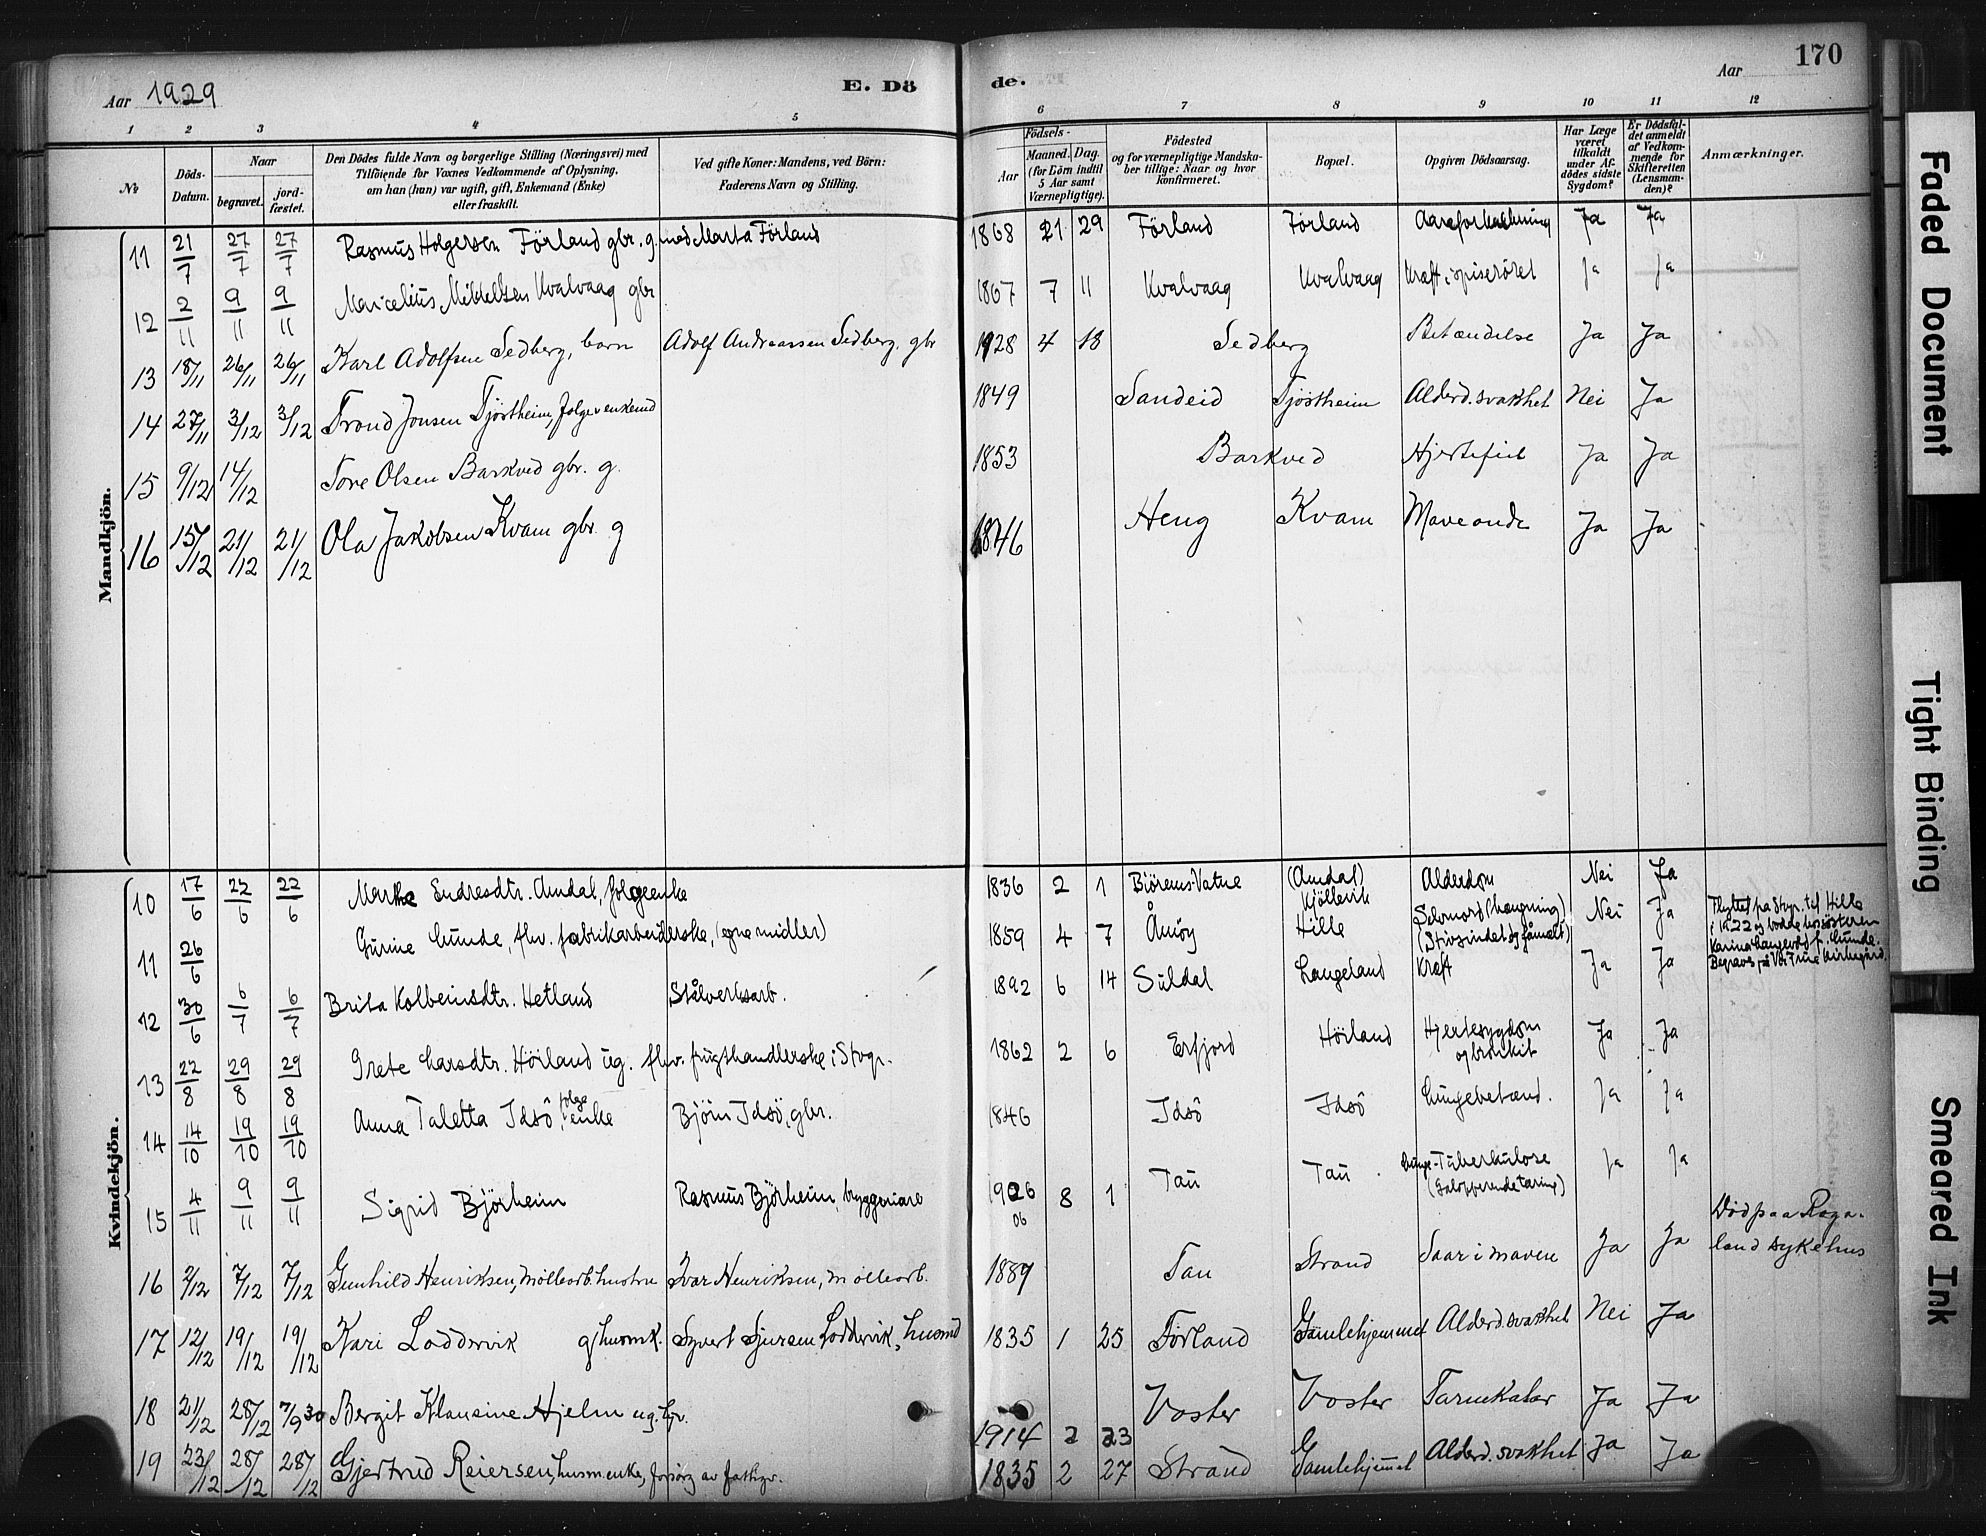 Aar 1929
E. Dö
de.
Aar
170
1 2 3 4 5 6 7 8 9 10 11 12
No
Döds-Datum.
Naar
begravet.
jord-fæstet.
Den Dödes fulde Navn og borgerlige Stilling (Næringsvei) med
Tilföiende for Voxnes Vedkommende af Oplysning,
om han (hun) var ugift, gift, Enkemand (Enke)
eller fraskilt.
Ved gifte Koner: Mandens, ved Börn:
Faderens Navn og Stilling.
Födsels-
Aar
Maaned. Dag.
(for Börn indtil
5 Aar samt
Værnepligtige).
Födested
og for værnepligtige Mandska-
ber tillige: Naar og hvor
konfirmeret.
Bopæl.
Opgiven Dödsaarsag.
Har Læge
været
tilkaldt
under Af-
dödes sidste
Sygdom?
Er Dödsfal-
det anmeldt
af Vedkom-
mende for
Skifteretten
(Lensman-
den)?
Anmærkninger.
Mandkjön.
11 21/7 27/7 27/7 Rasmus Holgersen Förland gbr. g. med Marta Förland 1868 21 29 Förland Förland Aareforkalkning Ja Ja
12 2/11 9/11 9/11 Marcelius Mikkelsen Kvalvaag gbr 1867 7 11 Kvalvaag Kvalvaag Kræft i spiseröret Ja Ja
13 18/11 26/11 26/11 Karl Adolfsen Sedberg, barn Adolf Andreassen Sedberg, gbr 1928 4 18 Sedberg Betændelse Ja Ja
14 27/11 3/12 3/12 Trond Jonsen Tjöstheim, folgevenkemd 1849 Sandeid Tjöstheim Alderd. svakhet Nei Ja
15 9/12 14/12 Tore Olsen Barkved gbr. g. 1853 Barkved Hjertefeil Ja Ja
16 15/12 21/12 21/12 Ola Jakobsen Kvam gbr. g 1846 Heng Kvam Maveonde Ja Ja
Kvindekjön.
10 17/6 22/6 22/6 Marthe Endresdtr. Amdal, folgeenke 1836 2 1 Björems-Vatne (Amdal) Kjöllevik Alderdom Nei Ja
11 26/6 Gurine Lunde, fhv. fabrikarbeiderske, (egne midler) 1859 4 7 Åmöy Hille Selvmord (hængning) (Sinsindet og fåmælt) Nei Ja Flyttet fra Stvgr. til Hille
i 1922 og bodde hos sösteren
Karina Langevold f. Lunde.
Begraves på Vor Frue kirkegård.
12 30/6 6/7 6/7 Brita Kolbeinsdtr. Hetland Stålverksarb. 1892 6 14 Suldal Langeland Kræft Ja Ja
13 22/8 29/8 29/8 Grete Larsdtr. Höiland ug. fhv. frugthandlerske i Stvgr. 1862 2 6 Erfjord Höiland Hjertesygdom og bronkit Ja Ja
14 14/10 19/10 19/10 Anna Taletta Idsö, folge enke Björn Idsö, gbr. 1846 Idsö Idsö Lungebetænd. Ja Ja
15 4/11 9/11 9/11 Sigrid Björheim Rasmus Björheim, bryggeriarb 1906 06 8 1 Tau Tau Lunge-Tuberkulose (Galopperende tæring) Ja Ja
16 2/12 7/12 7/12 Gunhild Henriksen, mölleorb. hustru Ivar Henriksen, mölleorb. 1889 Tau Strand Saar i maven Ja Ja Död paa Roga-
land sykehus
17 12/12 19/12 19/12 Kari Loddervik g/husmk. Syvert Sjursen Loddervik, husmd 1835 1 25 Förland Gamlehjemmet Alderd. svakhet Nei Ja
18 21/12 28/12 7/9 30 Bergit Klausine Hjelm ug. hv. 1914 2 23 Voster Voster Tarmkatar Ja Ja
19 23/12 28/12 28/12 Gjertrud Reiersen, husm.enke, forsörg av fatkgv. 1835 2 27 Strand Gamlehjemmet Alderd. svakhet Ja Ja
Faded Document
Tight Binding
Smeared Ink